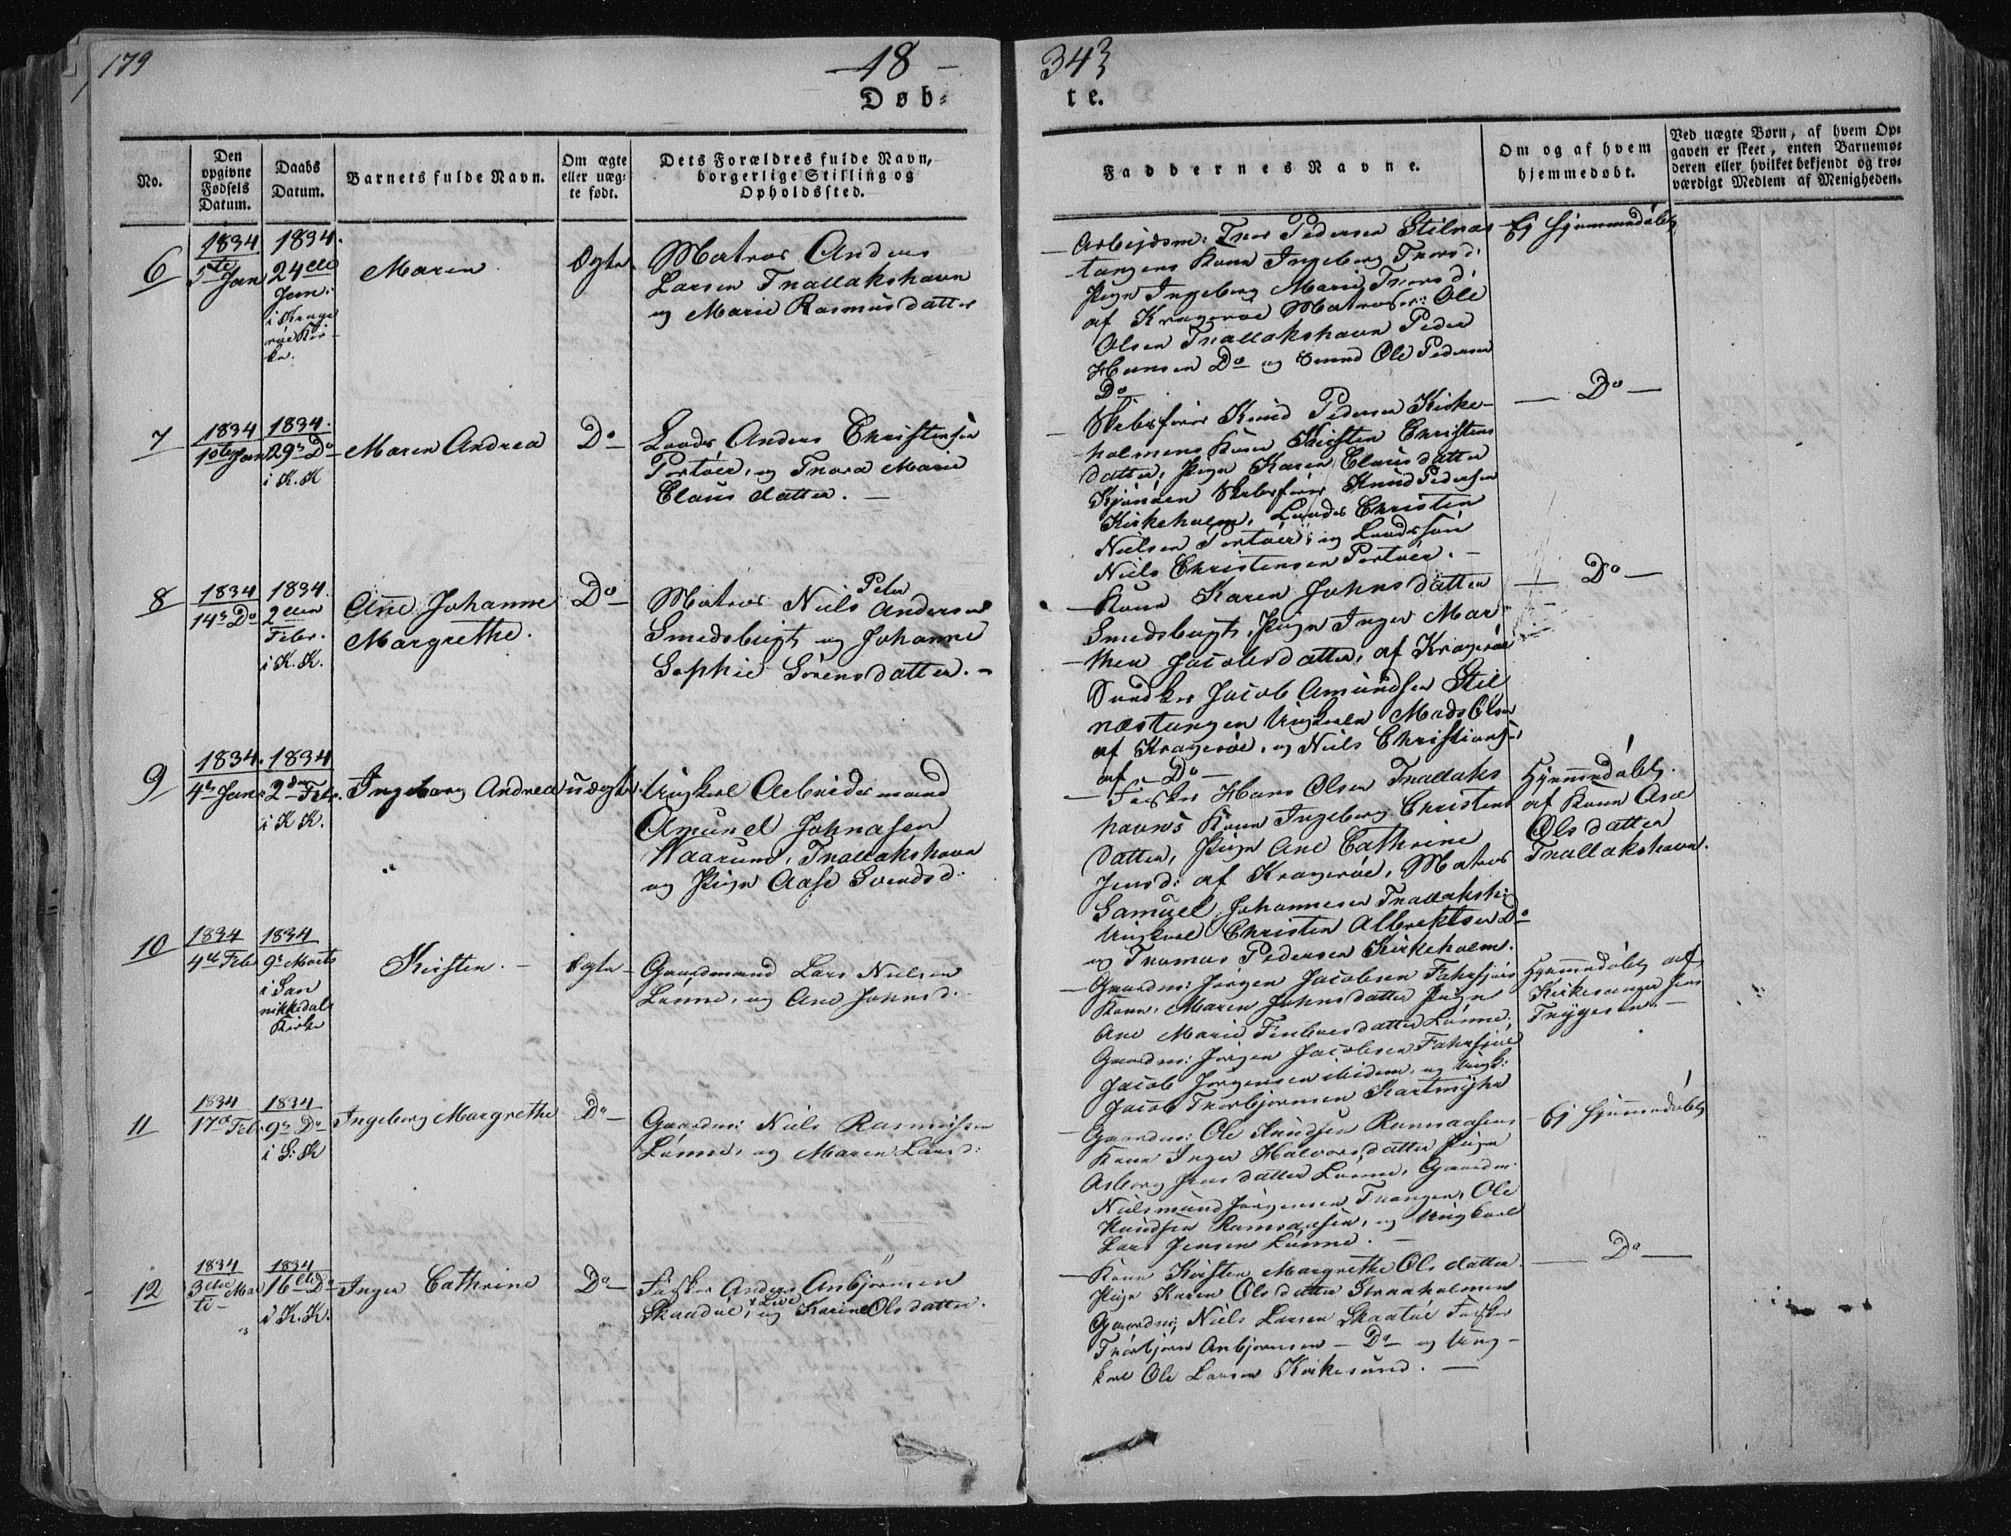 179
18
343
Døb-
te.
No.
Den
opgivne
Fødsels
Datum.
Daabs
Datum.
Barnets fulde Navn.
Om ægte
eller uæg-
te født.
Dets Forældres fulde Navn,
borgerlige Stilling og
Opholdssted.
Faddernes Navne.
Om og af hvem
hjemmedøbt.
Ved uægte Børn, af hvem Op-
gaven er skeet, enten Barnemo-
deren eller hvilket bekjendt og tro-
værdigt Medlem af Menigheden.
6
1834
5te Jan
1834.
24de
Jan.
i Krage
röe Kir-
ke.
Maren
Ægte
Matros Anders
Larsen Tnallakshavn
og Marie Rasmusdatter
Arbejdsm: Pedersen
tangens Kone Ingeborg
Pige Ingeborg Marie
af Kragerøe Matroser: Ole
Olsen Tnallakshavn Peder
Hansen Do og Svend Ole Pedersen
Do
Ej hjemmedöbt
7
1834
10te Jan
1834.
29 Do
i K. K
Maren Andrea
Do
Lods Anders Christensen
Portöer, og Tnora Marie
Claus datter. —
Skibsförer Knud Pedersen Kirke-
holmens Kone Kirsten Christens
datter, Pige Karen Clausdatter
Skibsförer Knud Pedersen
Kirkeholm, Lods Christen
Nielsen Portöer, og Lodssön
Niels Christensen Portöer. —
— Do —
8
1834
14 Do
1834.
2den
Febr.
i K. K.
Ane Johanne
Margrethe.
Do
Peter
Matros Niels Andersen
Smedsbugt og Johanne
Sophie Sörensdatter. —
Kone Karen Johns datter
Smedsbugt, Pige Inger Mar-
then Jacobsdatter, af Kragerøe
Jacob Amundsen Stil
næstangen Ungkarl Mads Olsen
af Kragerøe, og Niels Christians:
af — Do —
— Do —
9
1834.
4 Jan
1834
2den Febr.
i K K.
Ingeborg Andrea
uægte
Ungkarl Arbeidsmand
Amund Johnasen
Waarum, Tnallakshavn
og Pige Aase Svendsd:
Fisker Hans Olsen Tnallaks
havns Kone Ingeborg Christens
datter, Pige Ane Cathrine
Jensd: af Kragerøe, Matros
Samuel Johannesen Tnallaksh:
Ungkarl Christen Albrektsen Do
og Tnomas Pedersen Kirkeholm.
Hjemmedöbt.
af Kone Aase
Ols datter
Tnallakshavn.
10
1834
4de Febr
1834
9 Marts
i San
nikkedals
Kirke
Kirsten. —
Ægte
Gaardmand Lars Nielsen
Lönne, og Ane Johnsd.
Gaardm: Jörgen Jacobsen
Kone, Maren Johnsdatter Pige
Ane Marie datter Lönne.
Gaardm: Jörgen Jacobsen
Jacob Jörgensen ibidem, og Ungk:
Jacob Tnorbjörnsen
Hjemmedöbt af
Kirkesanger Jens
Trygesen. —
11
1834
17 Febr.
1834
9 Do
i S: K
Ingeborg Margrethe
Do
Gaardm: Niels Rasmussen
Lönne, og Maren Larsd:
Gaardm: Ole Knudsen Ramsaasens
Kone Inger Halvorsdatter Pige
Asborg Jens datter Lönne, Gaardm.
Nielsmund Jörgensen Tnangen, Ole
Knudsen Ramsaasen, og Ungkarl
Lars Jensen Lönne. —
Ej hjemmedöbt
12
1834
3die Mar
ts —
1834
16de Do
i K. K.
Inger Cathrine
Do
Fisker Anders Anbjörnsen
Skaadöe, og Karine Olsdatter.
Kone Kirsten Margrethe Olsdatter.
Pige Karen Olsdatter Straaholmen
Gaardm: Niels Larsen Skaatöe Fisker
Tnorbjörn Anbjörnsen — Do — og Ung-
karl Ole Larsen Kirkesund. —
— Do —